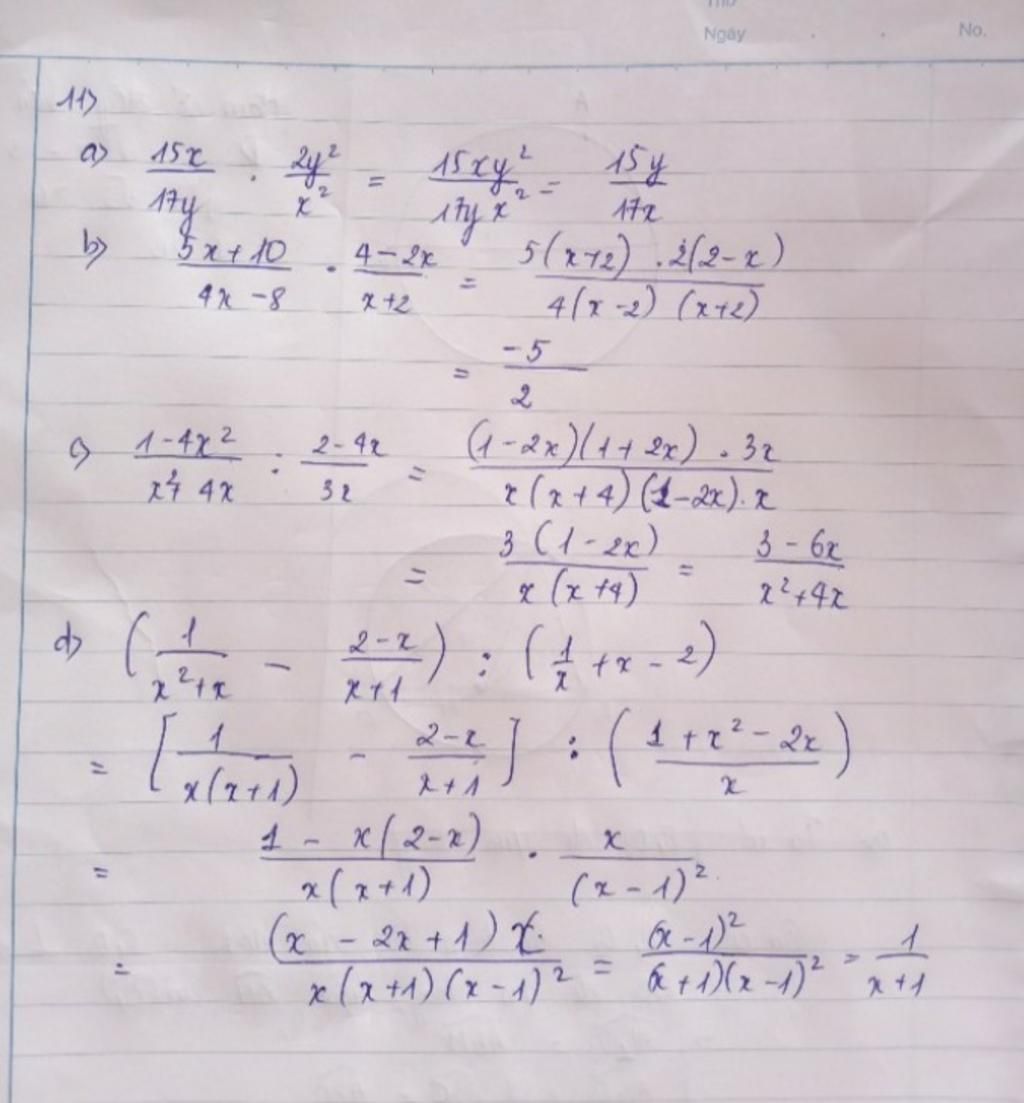 Thứ
Ngày . . No.
11)
a) 15x/17y . 2y²/x² = 15xy²/17yx² = 15y/17x
b) 5x+10/4x-8 . 4-2x/x+2 = 5(x+2) . 2(2-x)/4(x-2) (x+2)
= -5/2
c) 1-4x²/x²+4x : 2-4x/3x = (1-2x)(1+2x) . 3x/x(x+4)(1-2x).x
= 3(1-2x)/x(x+4) = 3-6x/x²+4x
d) (1/x²+x - 2-x/x+1) : (1/x + x - 2)
= [1/x(x+1) - 2-x/x+1] : (1+x²-2x/x)
= 1 - x(2-x)/x(x+1) . x/(x-1)²
= (x - 2x+1) x/x(x+1)(x-1)² = (x-1)²/(x+1)(x-1)² = 1/x+1